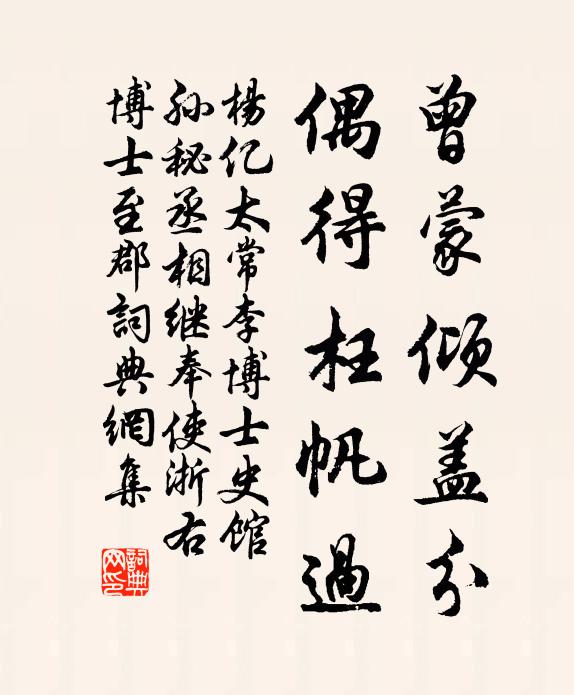 曾蒙倾盖分
偶得枉帆過
楊亿太常李博士史馆
孙秘丞相继奉使浙右
博士至郡詞典網集
詞典网印